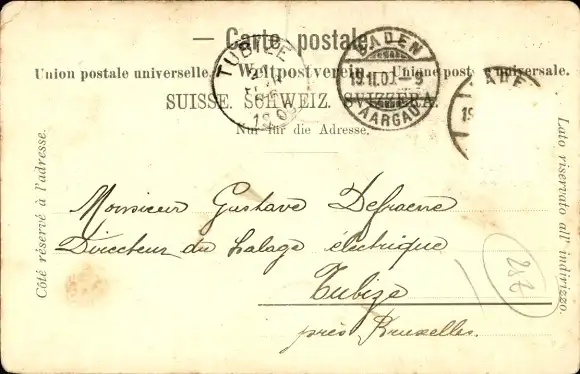 — Carte postale. —
Union postale universelle. Weltpostverein. Unione postale universale.
SUISSE. SCHWEIZ. SVIZZERA.
Nur für die Adresse.
TUBIZE
BADEN
19.11.0
AARGAU
Côté réservé à l'adresse.
Lato riservato all' indirizzo.
Monsieur Gustave Defraene
Directeur du halage électrique
Tubize
près Bruxelles.